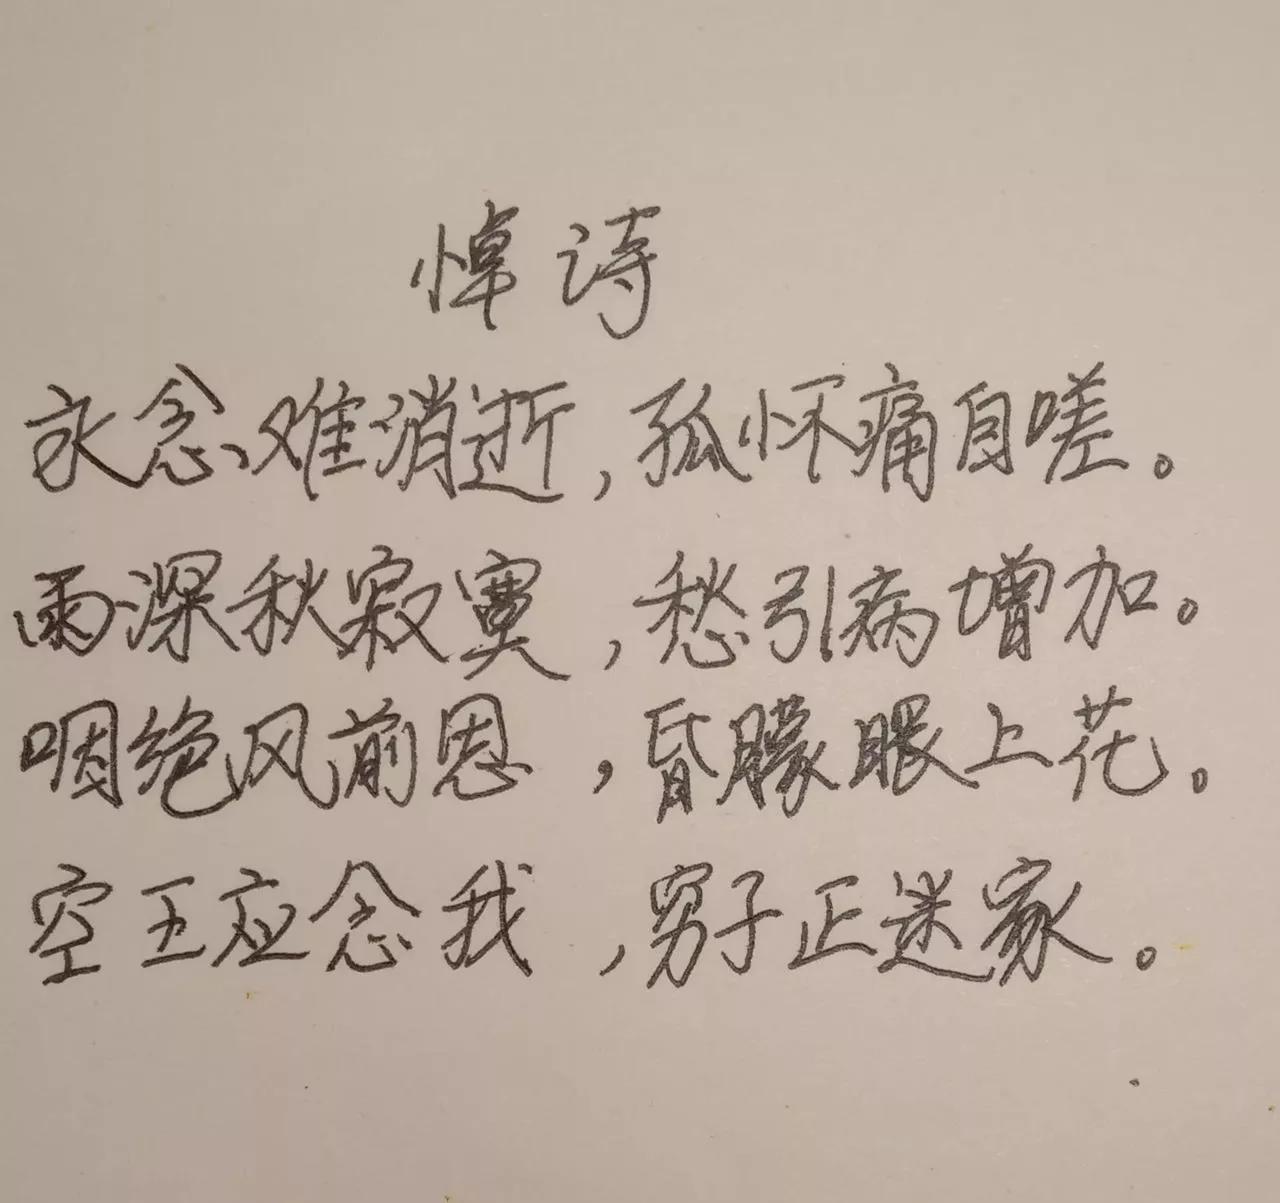 悼诗
永念难消逝，孤怀痛自嗟。
雨深秋寂寞，愁引病增加。
咽绝风前恩，昏朦眼上花。
空王应念我，穷子正迷家。